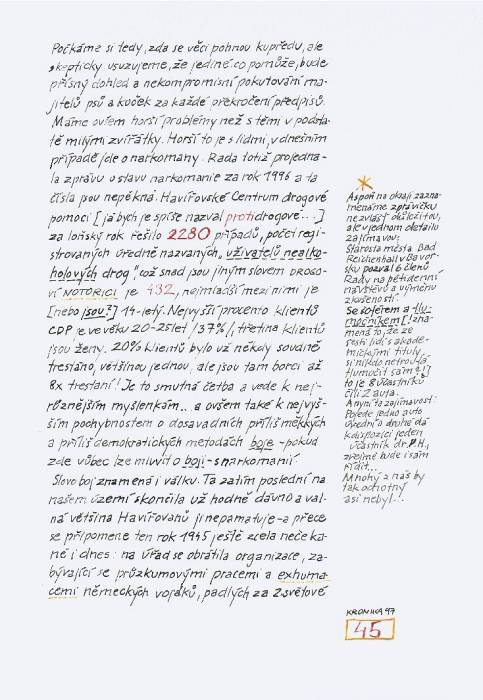 Počkáme si tedy, zda se věci pohnou kupředu, ale
skepticky usuzujeme, že jediné co pomůže, bude
přísný dohled a nekompromisní pokutování ma-
jitelů psů a koček za každé překročení předpisů.
Máme ovšem horší problémy než s těmi v podsta-
tě milými zvířátky. Horší to je s lidmi, v dnešním
případě jde o narkomany. Rada totiž projedna-
la zprávu o stavu narkomanie za rok 1996 a ta
čísla jsou nepěkná. Havířovské Centrum drogové
pomoci [já bych je spíše nazval protidrogové...]
za loňský rok řešilo 2280 případů, počet regi-
strovaných úředně nazvaných „uživatelů nealko-
holových drog", což snad jsou jiným slovem DROGO-
VÍ NOTORICI je 432, nejmladší mezi nimi je
[nebo jsou?] 14-letý. Nejvyšší procento klientů
CDP je ve věku 20-25 let /37%/, třetina klientů
jsou ženy. 20% klientů bylo už někdy soudně
trestáno, většinou jednou, ale jsou tam borci až
8x trestaní! Je to smutná četba a vede k nej-
různějším myšlenkám.. a ovšem také k nejvyš-
ším pochybnostem o dosavadních příliš měkkých
a příliš demokratických metodách boje - pokud
zde vůbec lze mluvit o boji - s narkomanií.
Slovo boj znamená i válku. Ta zatím poslední na
našem území skončila už hodně dávno a val-
ná většina Havířovanů ji nepamatuje - a přece
se připomene ten rok 1945 ještě zcela nečeka-
ně i dnes: na úřad se obrátila organizace, za-
bývající se průzkumovými pracemi a exhuma-
cemi německých vojáků, padlých za 2. světové
*
Aspoň na okraji zazna-
menáme zprávičku
nezvlášť důležitou,
ale v jednom detailu
zajímavou:
Starosta města Bad
Reichenhall v Bavor-
sku pozval 6 členů
Rady na pětidenní
návštěvu a výměnu
zkušeností.
Se šoférem a tlu-
močníkem [! zna-
mená to, že ze
šesti lidí s akade-
mickými tituly
si nikdo netroufá
tlumočit sám?!]
to je 8 účastníků
čili 2 auta.
A nyní ta zajímavost:
Pojede jedno auto
úřední a druhé dá
k dispozici jeden
účastník dr. P.H.,
zřejmě bude i sám
řídit...
Mnohý z nás by
tak ochotný
asi nebyl...
KRONIKA 97
45